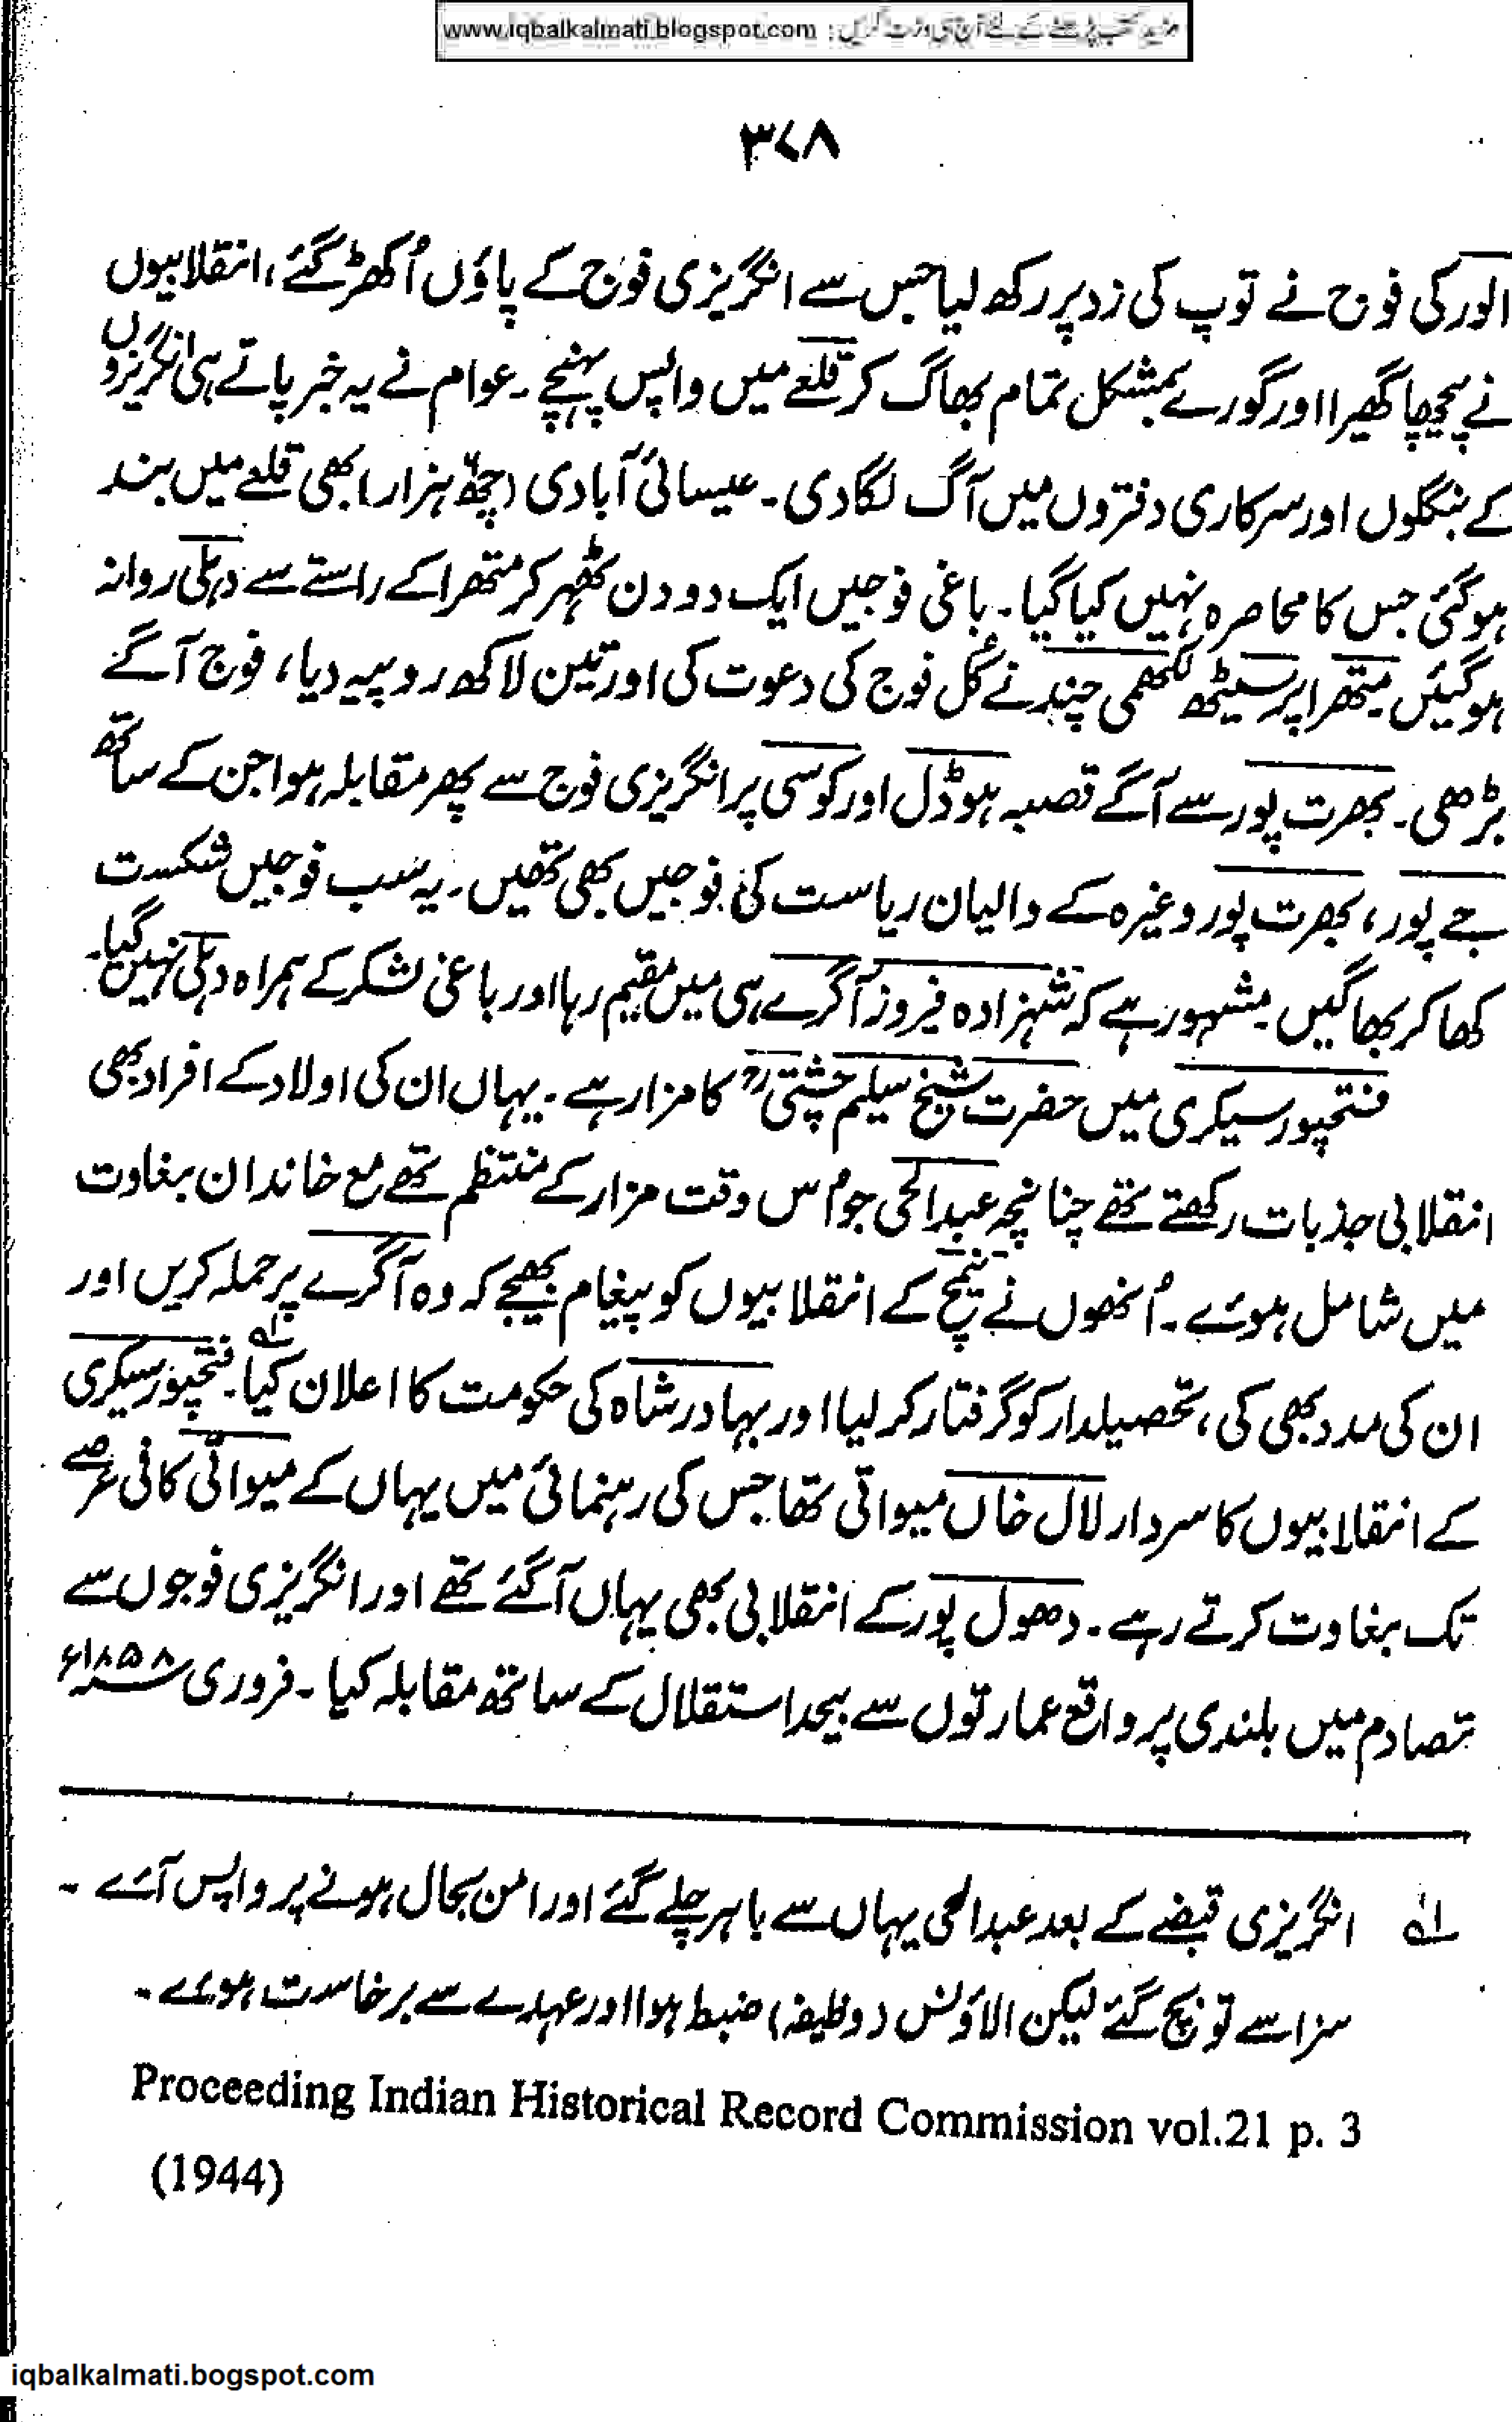 www.iqbalkalmati.blogspot.com : مزید کتب پڑھنے کے لئے آج ہی وزٹ کریں
۳۷۸
الور کی فوج نے توپ کی زد پر رکھ لیا جس سے انگریزی فوج کے پاؤں اُکھڑ گئے، انقلابیوں
نے پیچھا گھیرا اور گورے بمشکل تمام بھاگ کر قلعے میں واپس پہنچے ۔ عوام نے یہ خبر پاتے ہی انگریزوں
کے بنگلوں اور سرکاری دفتروں میں آگ لگا دی ۔ عیسائی آبادی (چھ ہزار) بھی قلعے میں بند
ہو گئی جس کا محاصرہ نہیں کیا گیا ۔ باغی فوجیں ایک دو دن ٹھہر کر متھرا کے راستے سے دہلی روانہ
ہو گیئں متھرا پر سیٹھ لکھمی چند نے کُل فوج کی دعوت کی اور تین لاکھ روپیہ دیا، فوج آگے
بڑھی ۔ بھرت پور سے آگے قصبہ ہوڈل اور کوسی پر انگریزی فوج سے پھر مقابلہ ہوا جن کے ساتھ
جے پور، بھرت پور وغیرہ کے والیان ریاست کی فوجیں بھی تھیں ۔ یہ سب فوجیں شکست
کھا کر بھاگیں ۔ مشہور ہے کہ شہزادہ فیروز آگرے ہی میں مقیم رہا اور باغی لشکر کے ہمراہ دہلی نہیں گیا ۔
فتحپور سیکری میں حضرت شیخ سیلم چشتیؒ کا مزار ہے ۔ یہاں ان کی اولاد کے افراد بھی
انقلابی جذبات رکھتے تھے چنانچہ عبدالحی جو اُس وقت مزار کے منتظم تھے مع خاندان بغاوت
میں شامل ہوئے ۔ اُنھوں نے نیمچ کے انقلابیوں کو پیغام بھیجے کہ وہ آگرے پر حملہ کریں اور
ان کی مدد بھی کی، تحصیلدار کو گرفتار کر لیا اور بہادر شاہ کی حکومت کا اعلان کیا ۔ ؂۱ فتحپور سیکری
کے انقلابیوں کا سردار لال خاں میواتی تھا جس کی رہنمائی میں یہاں کے میواتی کافی عرصے
تک بغاوت کرتے رہے ۔ دھول پور کے انقلابی بھی یہاں آگئے تھے اور انگریزی فوجوں سے
تصادم میں بلندی پر واقع عمارتوں سے بیحد استقلال کے ساتھ مقابلہ کیا ۔ فروری ۱۸۵۸ء
؂۱ انگریزی قبضے کے بعد عبدالحی یہاں سے باہر چلے گئے اور امن بحال ہونے پر واپس آئے ۔
سزا سے تو بچ گئے لیکن الاؤنس (وظیفہ) ضبط ہوا اور عہدے سے برخاست ہوئے ۔
Proceeding Indian Historical Record Commission vol.21 p. 3
(1944)
iqbalkalmati.bogspot.com